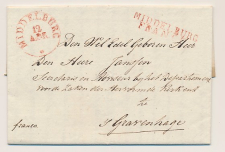 MIDDELBURG
MIDDELBURG
FRANCO
Den Wel Edel Geboren Heer
Den Heere Janssen
Secretaris en Adviseur bij het Departement
voor de Zaken der Hervormde Kerk enz
te
franco
s Gravenhage